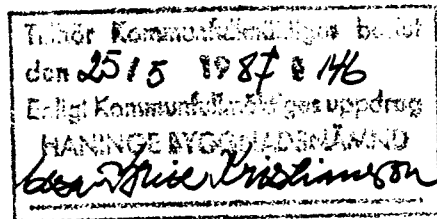 Tillhör Kommunfullmäktiges beslut
den 25 / 5 1987 § 146
Enligt Kommunfullmäktiges uppdrag
HANINGE BYGGNADSNÄMND
Kristiansson